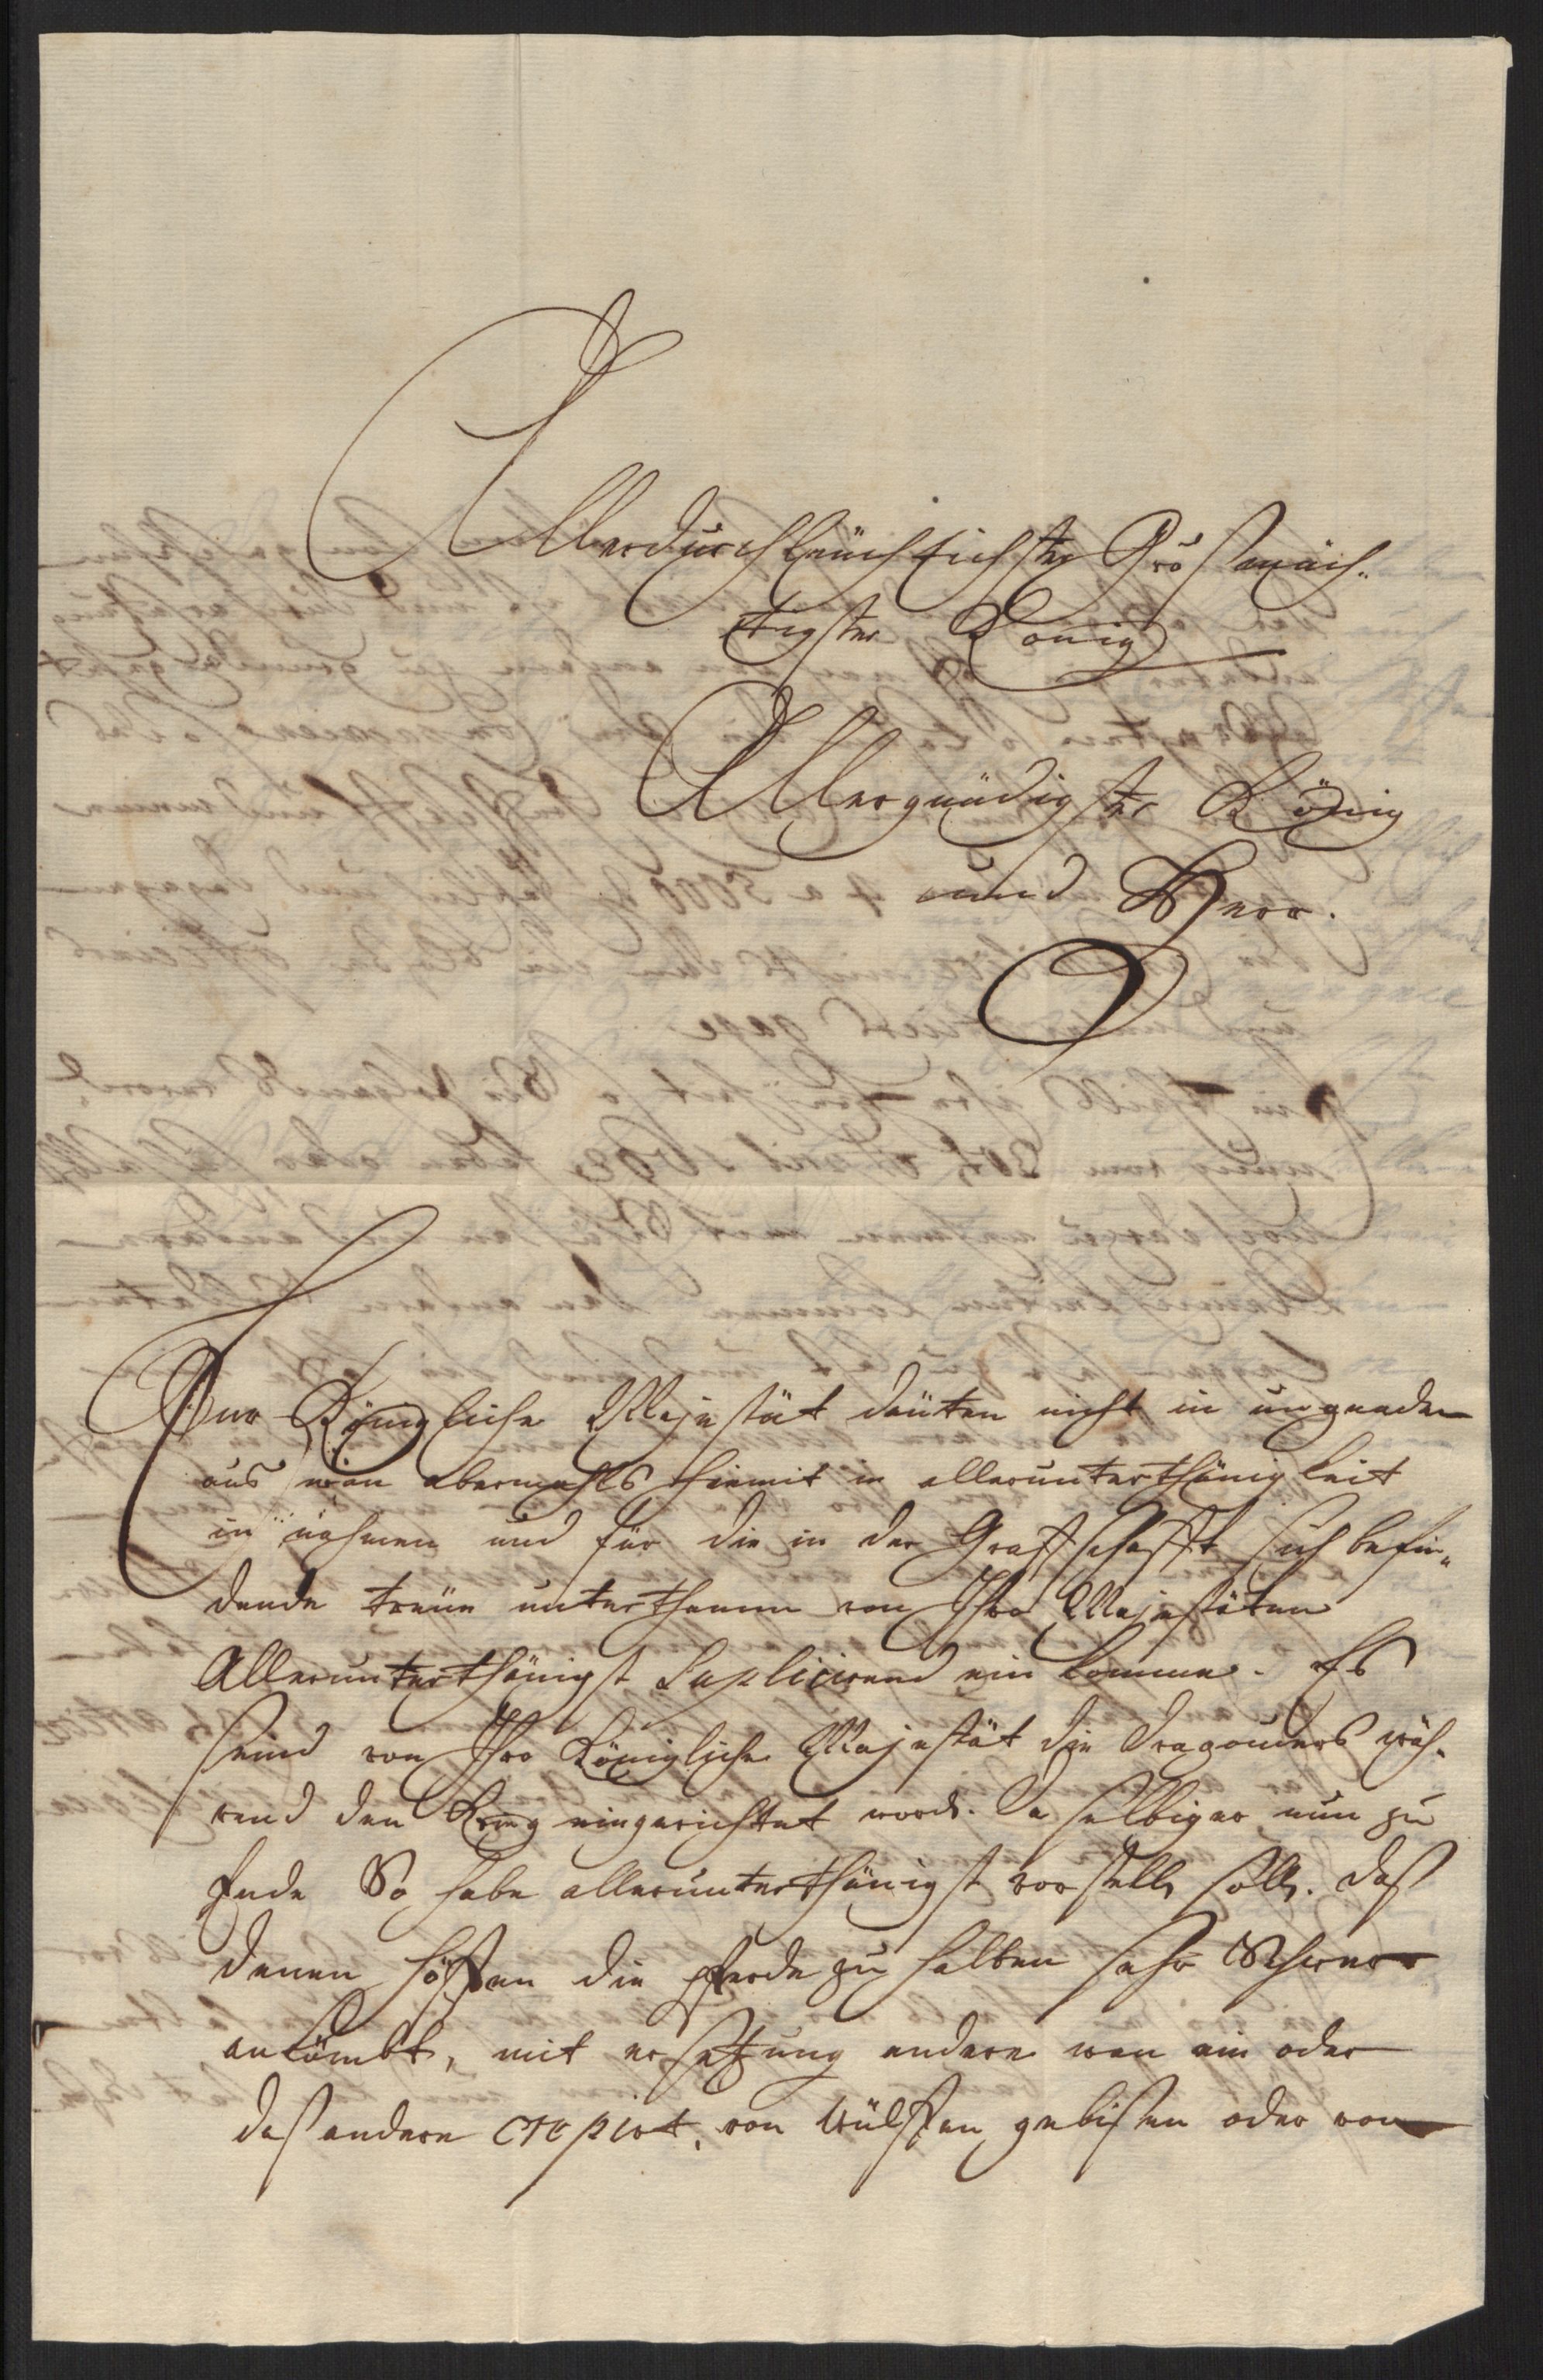 Allerdurchleüchtichster Großmäch-
tigster König
Allergnädigster König
und Herr.
Eur Königliche Majestät deüten nicht in ungnaden
aus wan abermahls hiemit in allerunterthänigkeit
in nahmen und für die in der Graffschafft sich befin-
dende treüe unterthanen von Ihro Majestäten
Allerunterthänigst Suplicirend ein komme. Es
seind von Ihro Königliche Majestät die Dragouners wäh-
rend den Krieg eingerichtet word. Da selbiger nun zu
Ende So habe allerunterthänigst vorstelln solln. daß
denen höffen die pferde zu halten sehr Schwer
ankömbt, mit ersetzung andere wan ein oder
daß andere crepirt, von Wülffen gebissen oder von